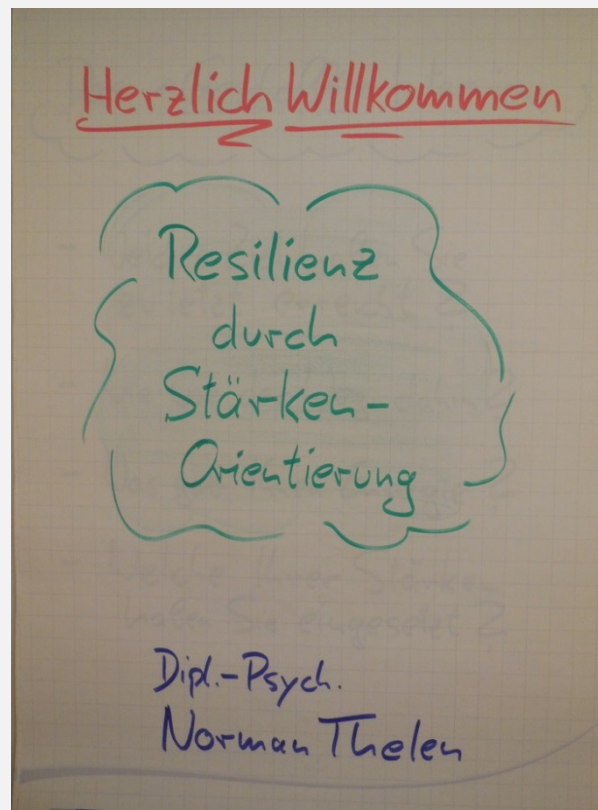 Herzlich Willkommen
Resilienz
durch
Stärken-
Orientierung
Dipl.-Psych.
Norman Thelen